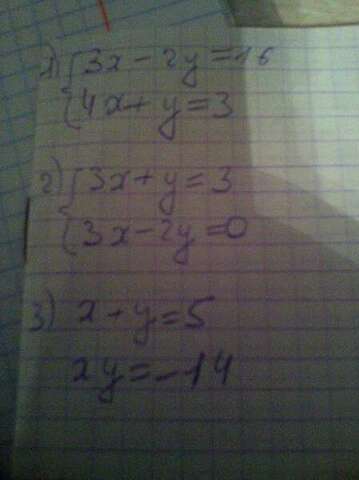 1) { 3x - 2y = 16
4x + y = 3
2) { 3x + y = 3
3x - 2y = 0
3) x + y = 5
xy = -14